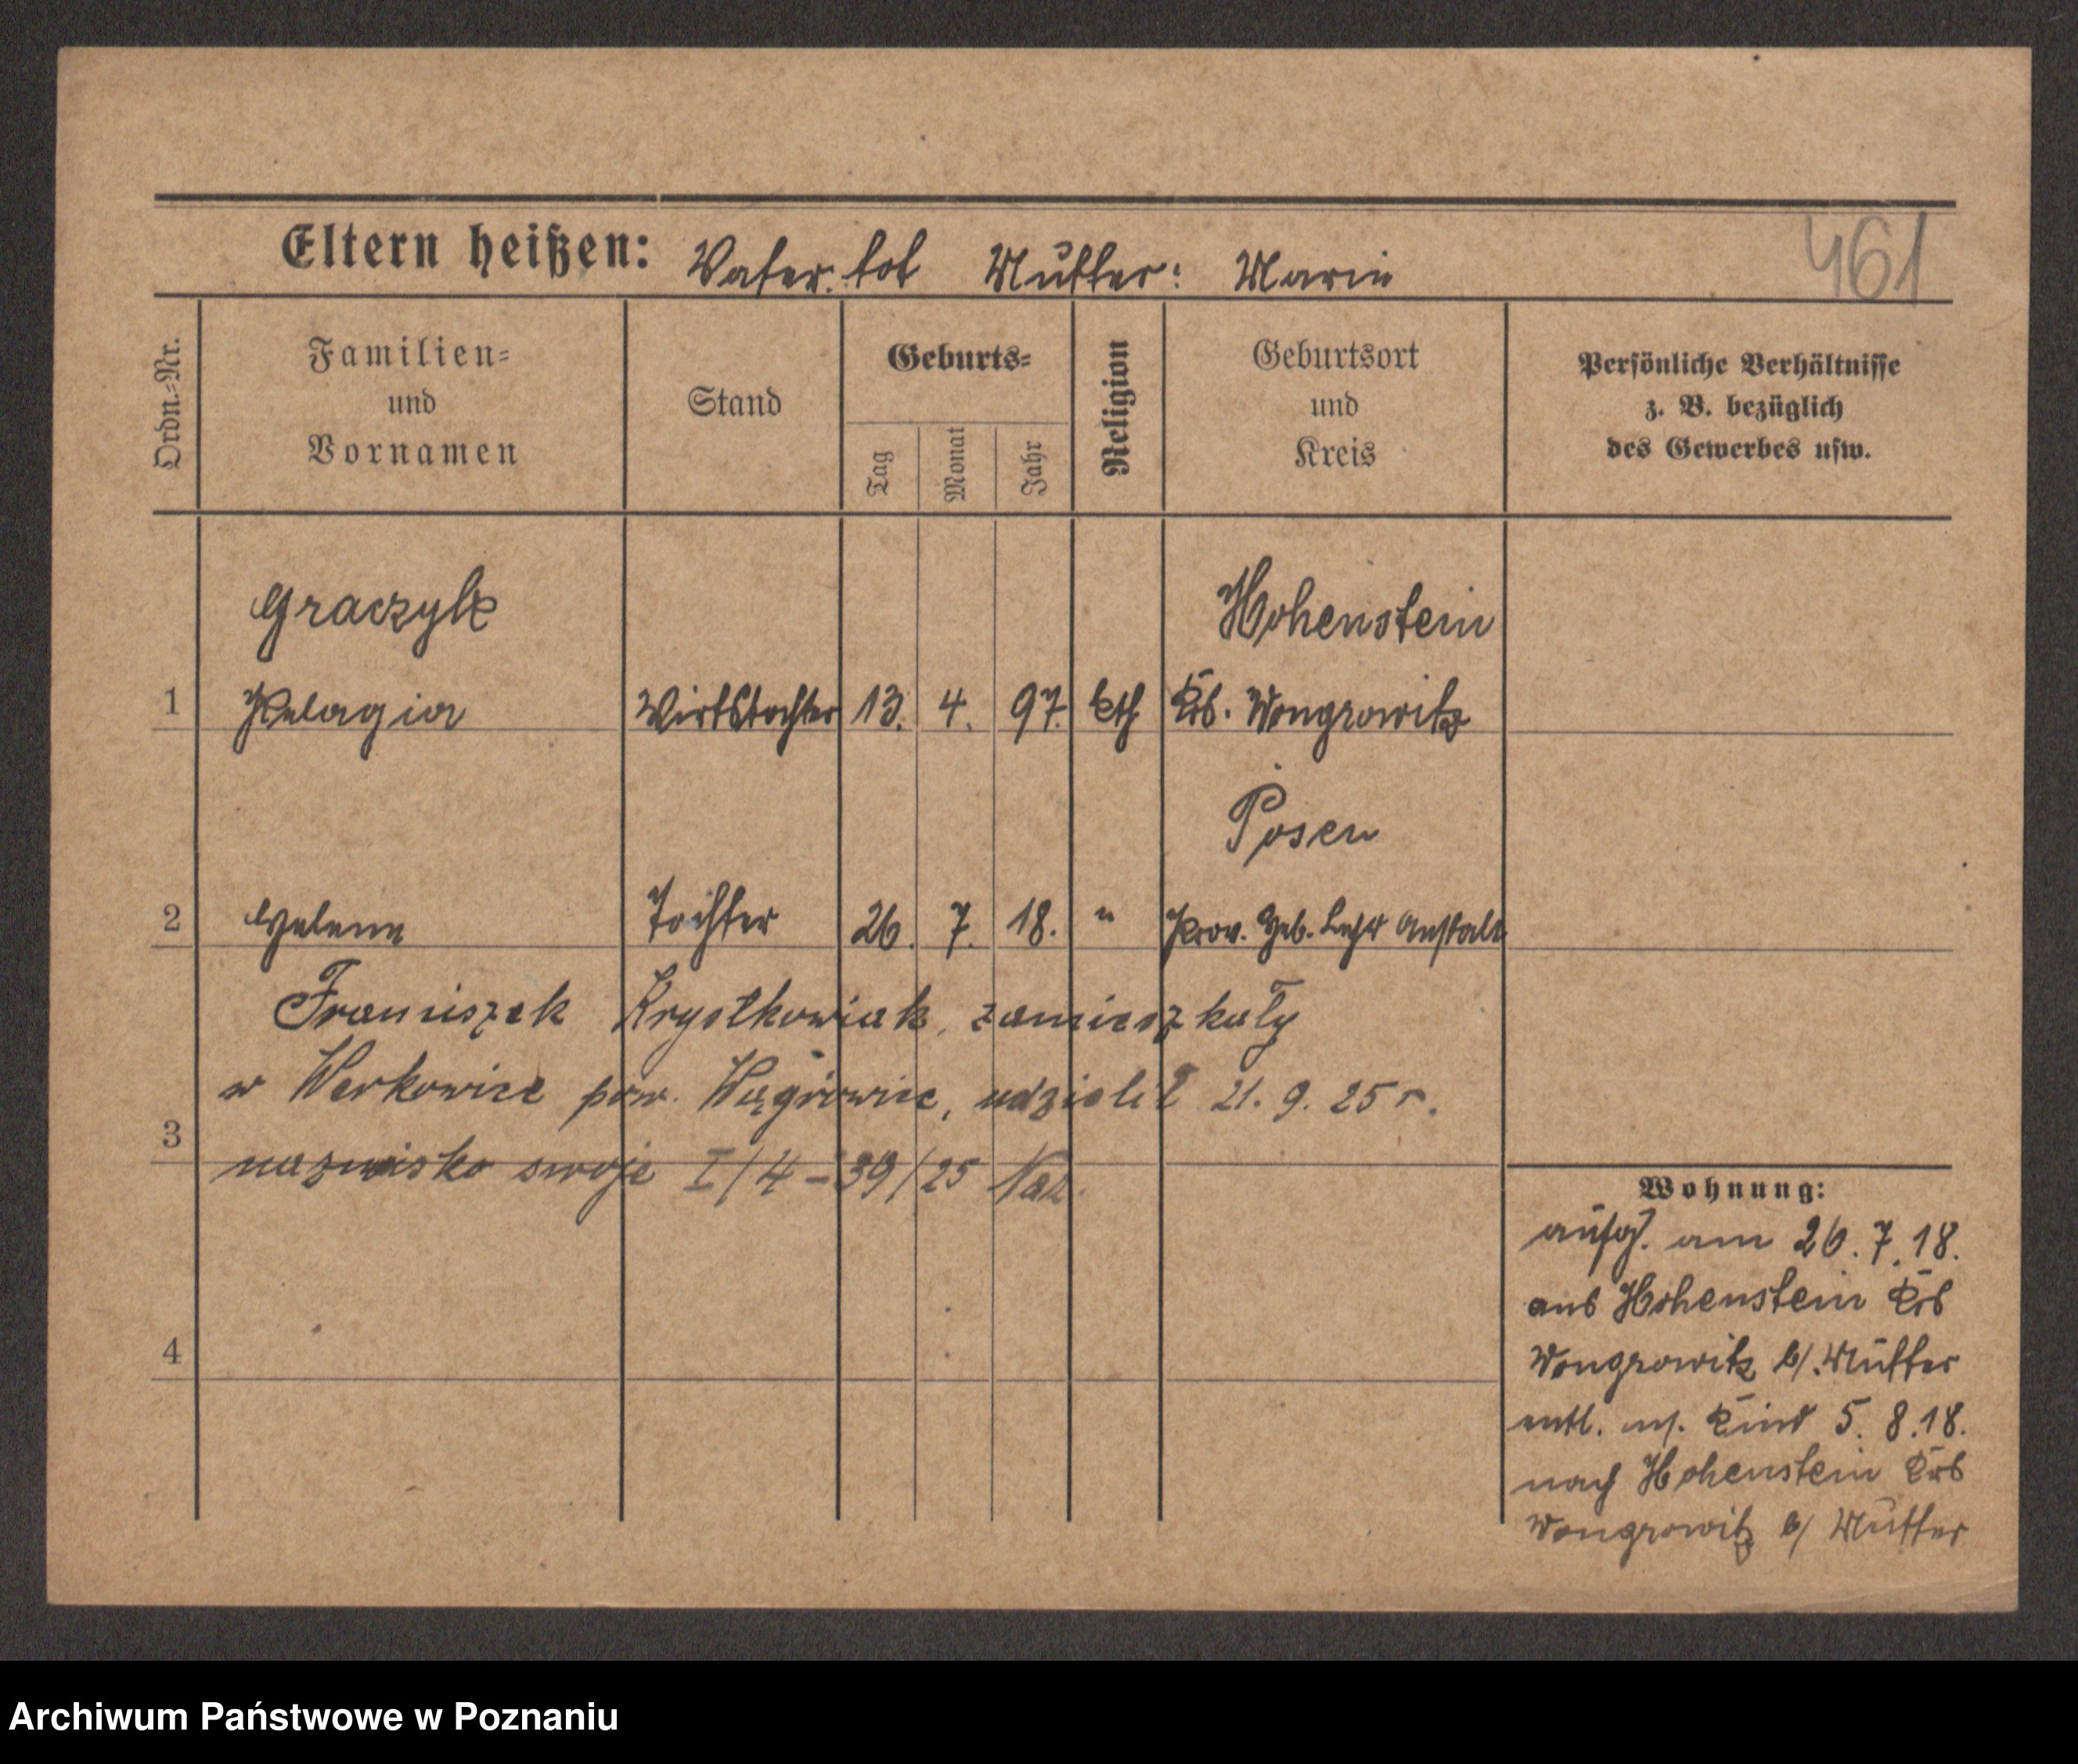 Eltern heißen: Vater. tot Mutter: Marie
461
Ordn.-Nr.
Familien-
und
Vornamen
Stand
Geburts-
Tag
Monat
Jahr
Religion
Geburtsort
und
Kreis
Persönliche Verhältnisse
z. B. bezüglich
des Gewerbes usw.
Graczyk Hohenstein
1 Pelagia Wirtstochter 13. 4. 97. kth Krs. Wongrowitz
Posen
2 Helene Tochter 26. 7. 18. " Prov. Heb. Lehr Anstalt
Franciszek Krystkowiak, zamieszkały
w Werkowice pow. Wągrowiec, udzielił 21. 9. 25 r.
3
nazwisko swoje I/4-39/25
4
Wohnung:
aufg. am 26.7.18.
aus Hohenstein Krs
Wongrowitz b/. Mutter
entl. m/. Kind 5. 8.18.
nach Hohenstein Krs
Wongrowitz b/ Mutter
Archiwum Państwowe w Poznaniu